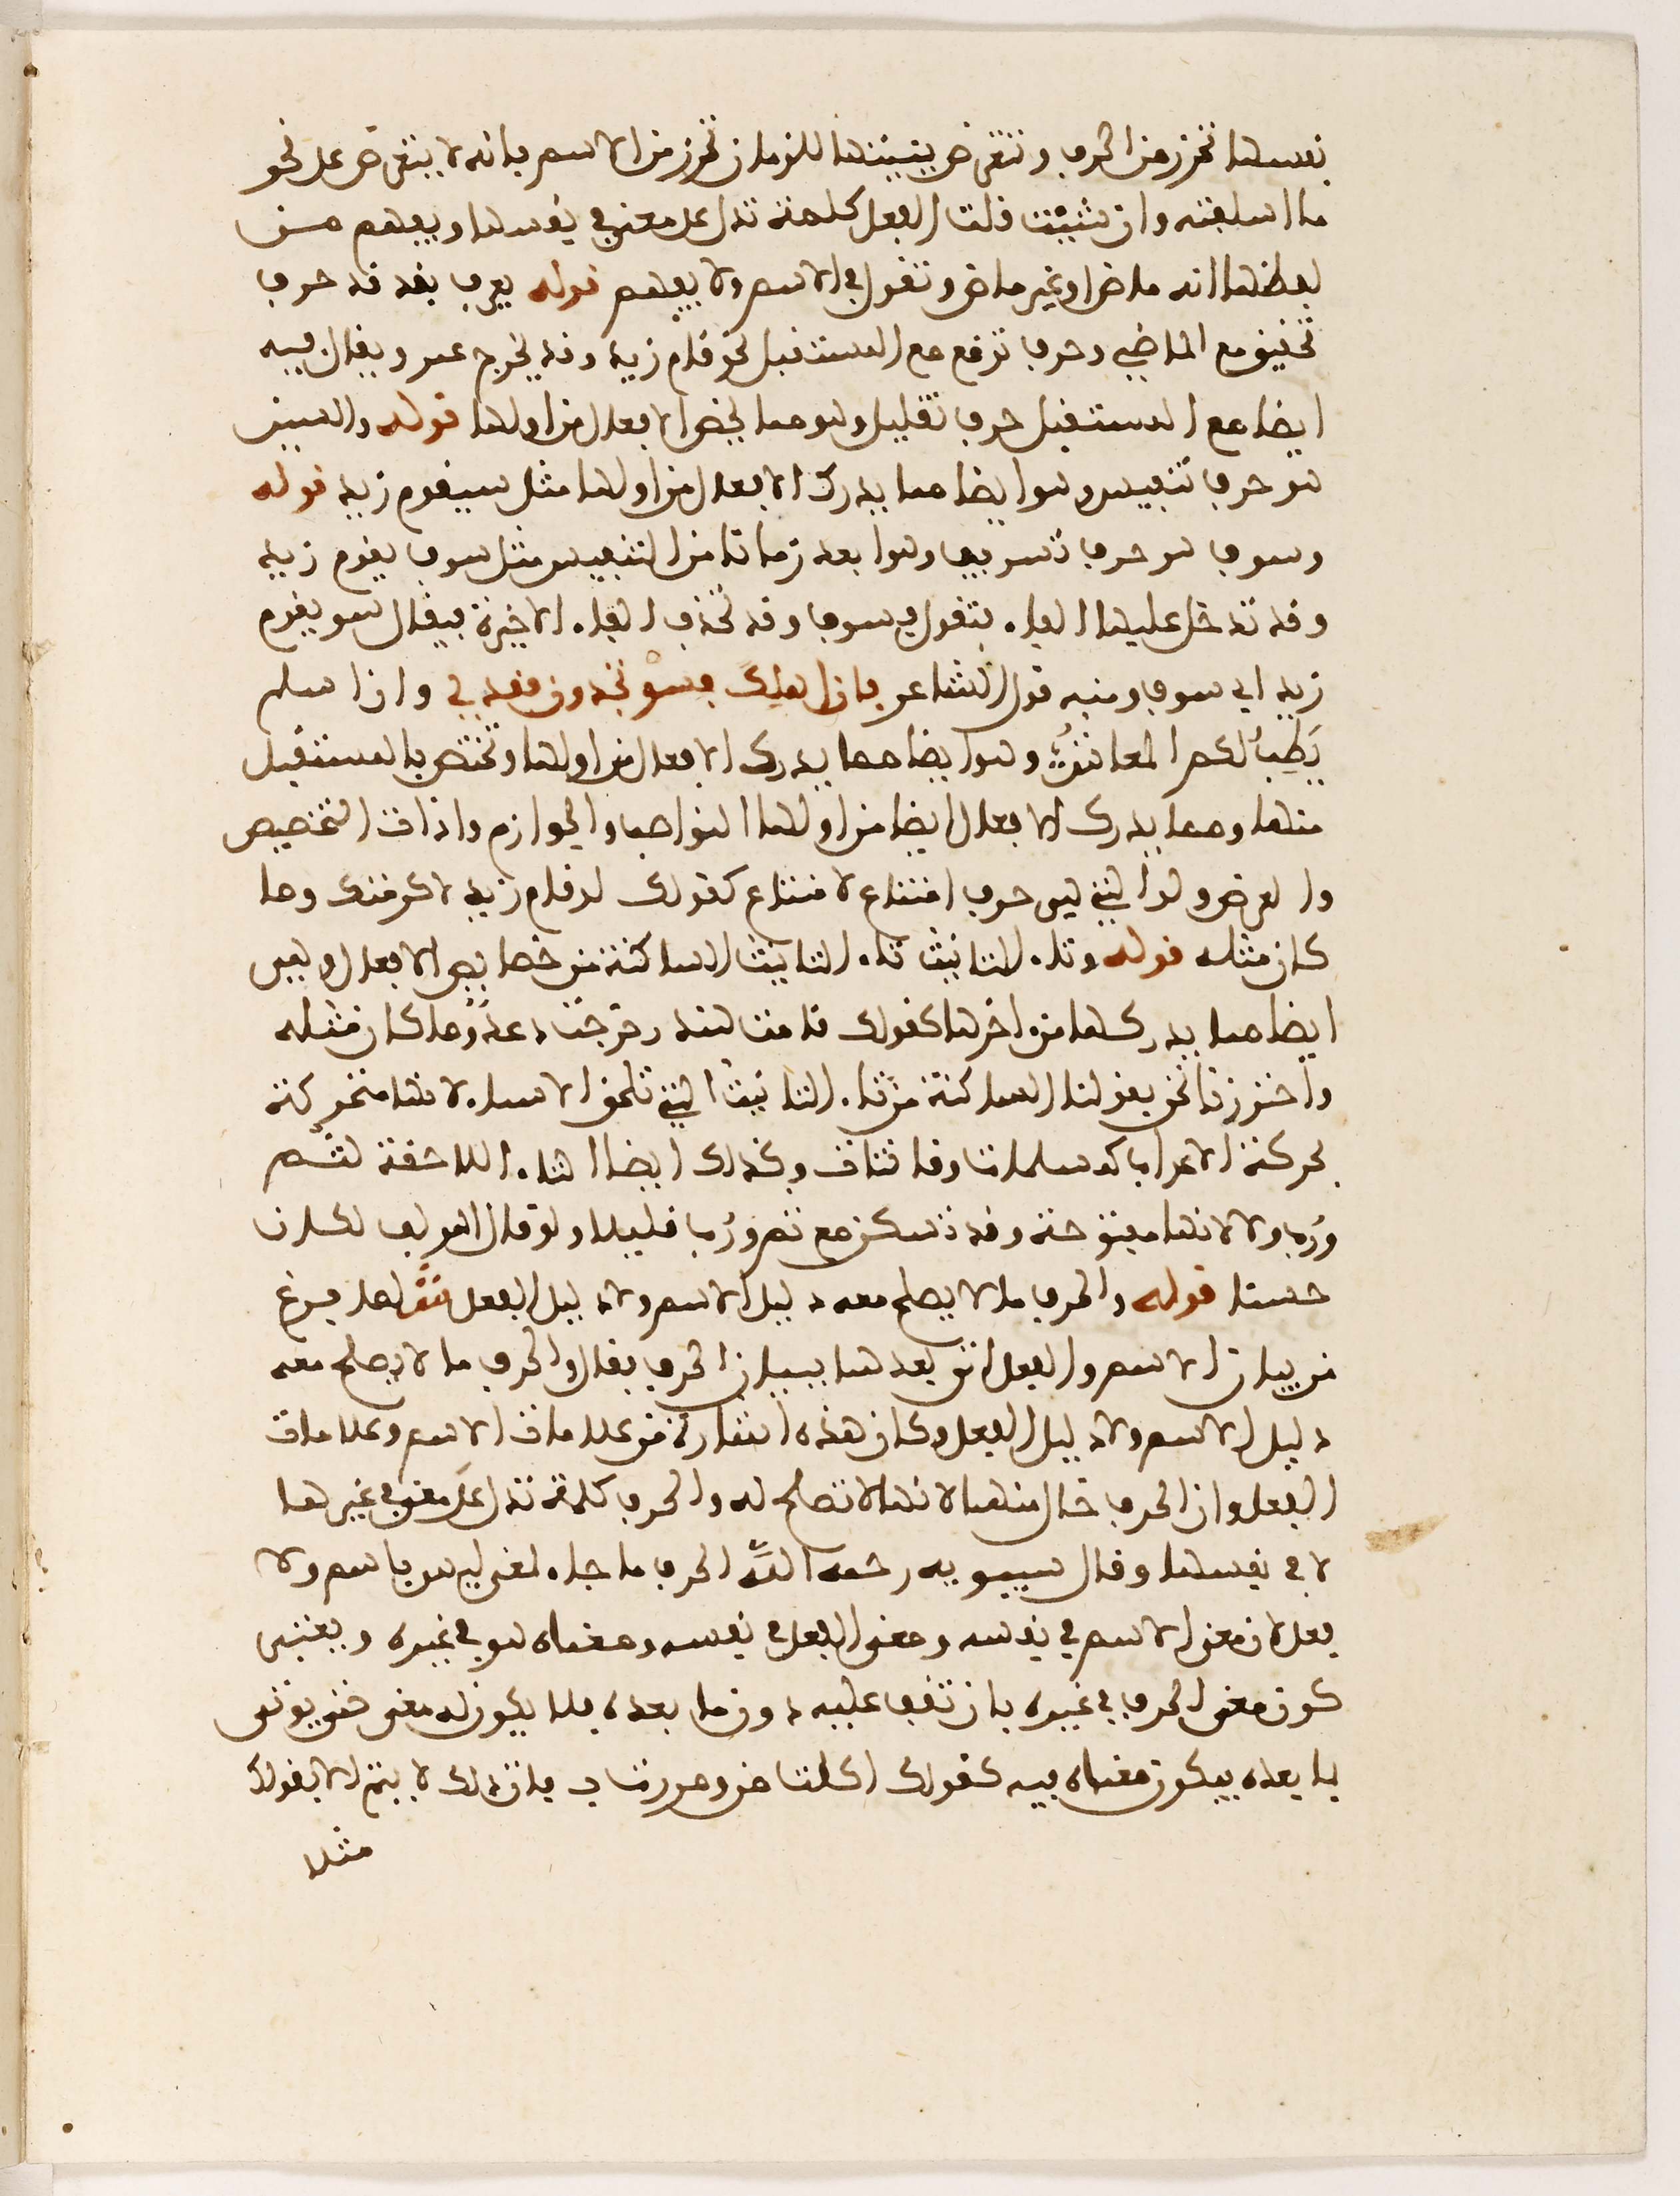 نفسها تحرز من الحرف وتتعرض ببنيتها للزمان تحرز من الاسم فانه لا يتعرض على نحو
ما اسلفته وان شئت قلت الفعل كلمة تدل على معنى في نفسها ويفهم من
لفظها انه ماض او غير ماض وتقول في الاسم ولا يفهم قوله يعرف بقد قد حرف
تحقيق مع الماضي وحرف توقع مع المستقبل نحو قام زيد وقد يخرج عمر ويقال فيه
ايضا مع المستقبل حرف تقليل وهو مما يخص الافعال من اولها قوله والسين
هو حرف تنفيس وهو ايضا مما يدرك الافعال من اولها مثل سيقوم زيد قوله
وسوف هو حرف تسويف وهو ابعد زمانا من التنفيس مثل سوف يقوم زيد
وقد تدخل عليها الفاء فتقول فسوف وقد تحذف الفاء الاخيرة فيقال سو يقوم
زيد اي سوف ومنه قول الشاعر فان اهلك فسو تجدون فقدي وان اسلم
يطب لكم المعاش وهو ايضا مما يدرك الافعال من اولها وتختص بالمستقبل
منها ومما يدرك الافعال ايضا من اولها النواصب والجوازم وادات التخصيص
والعرض ولو التي هي حرف امتناع لامتناع كقولك لو قام زيد لاكرمتك وما
كان مثله قوله وتاء التانيث تاء التانيث الساكنة من خصايص الافعال وهي
ايضا مما يدركها من اخرها كقولك قامت هند وخرجت دعد وما كان مثله
واحترزنا نحن بقولنا الساكنة من تاء التانيث التي تلحق الاسماء لانها متحركة
بحركة الاعراب كمسلمات وقانتات وكذلك ايضا التاء اللاحقة لثم
ورب ولا لانها مفتوحة وقد تسكن مع ثم ورب قليلا ولو قال المولف لكان
حسنا قوله والحرف ما لا يصلح معه دليل الاسم ولا دليل الفعل ش لما فرغ
من بيان الاسم والفعل اتى بعدها ببيان الحرف فقال والحرف ما لا يصلح معه
دليل الاسم ولا دليل الفعل وكان هذه اشارة من علامات الاسم وعلامات
الفعل وان الحرف خال منها لانها لا تصلح له والحرف كلمة تدل على معنى في غيرها
لا في نفسها وقال سيبويه رحمه الله الحرف ما جاء لمعنى ليس باسم ولا
فعل لان معنى الاسم في نفسه ومعنى الفعل في نفسه ومعناه هو في غيره ويعني
كون معنى الحرف في غيره بان تقف عليه دون ما بعده فلا يكون له معنى حتى يوتى
بما بعده فيكون معناه فيه كقولك اكلت من ومررت ب فان ذلك لا يتم الا بقولك
مثلا